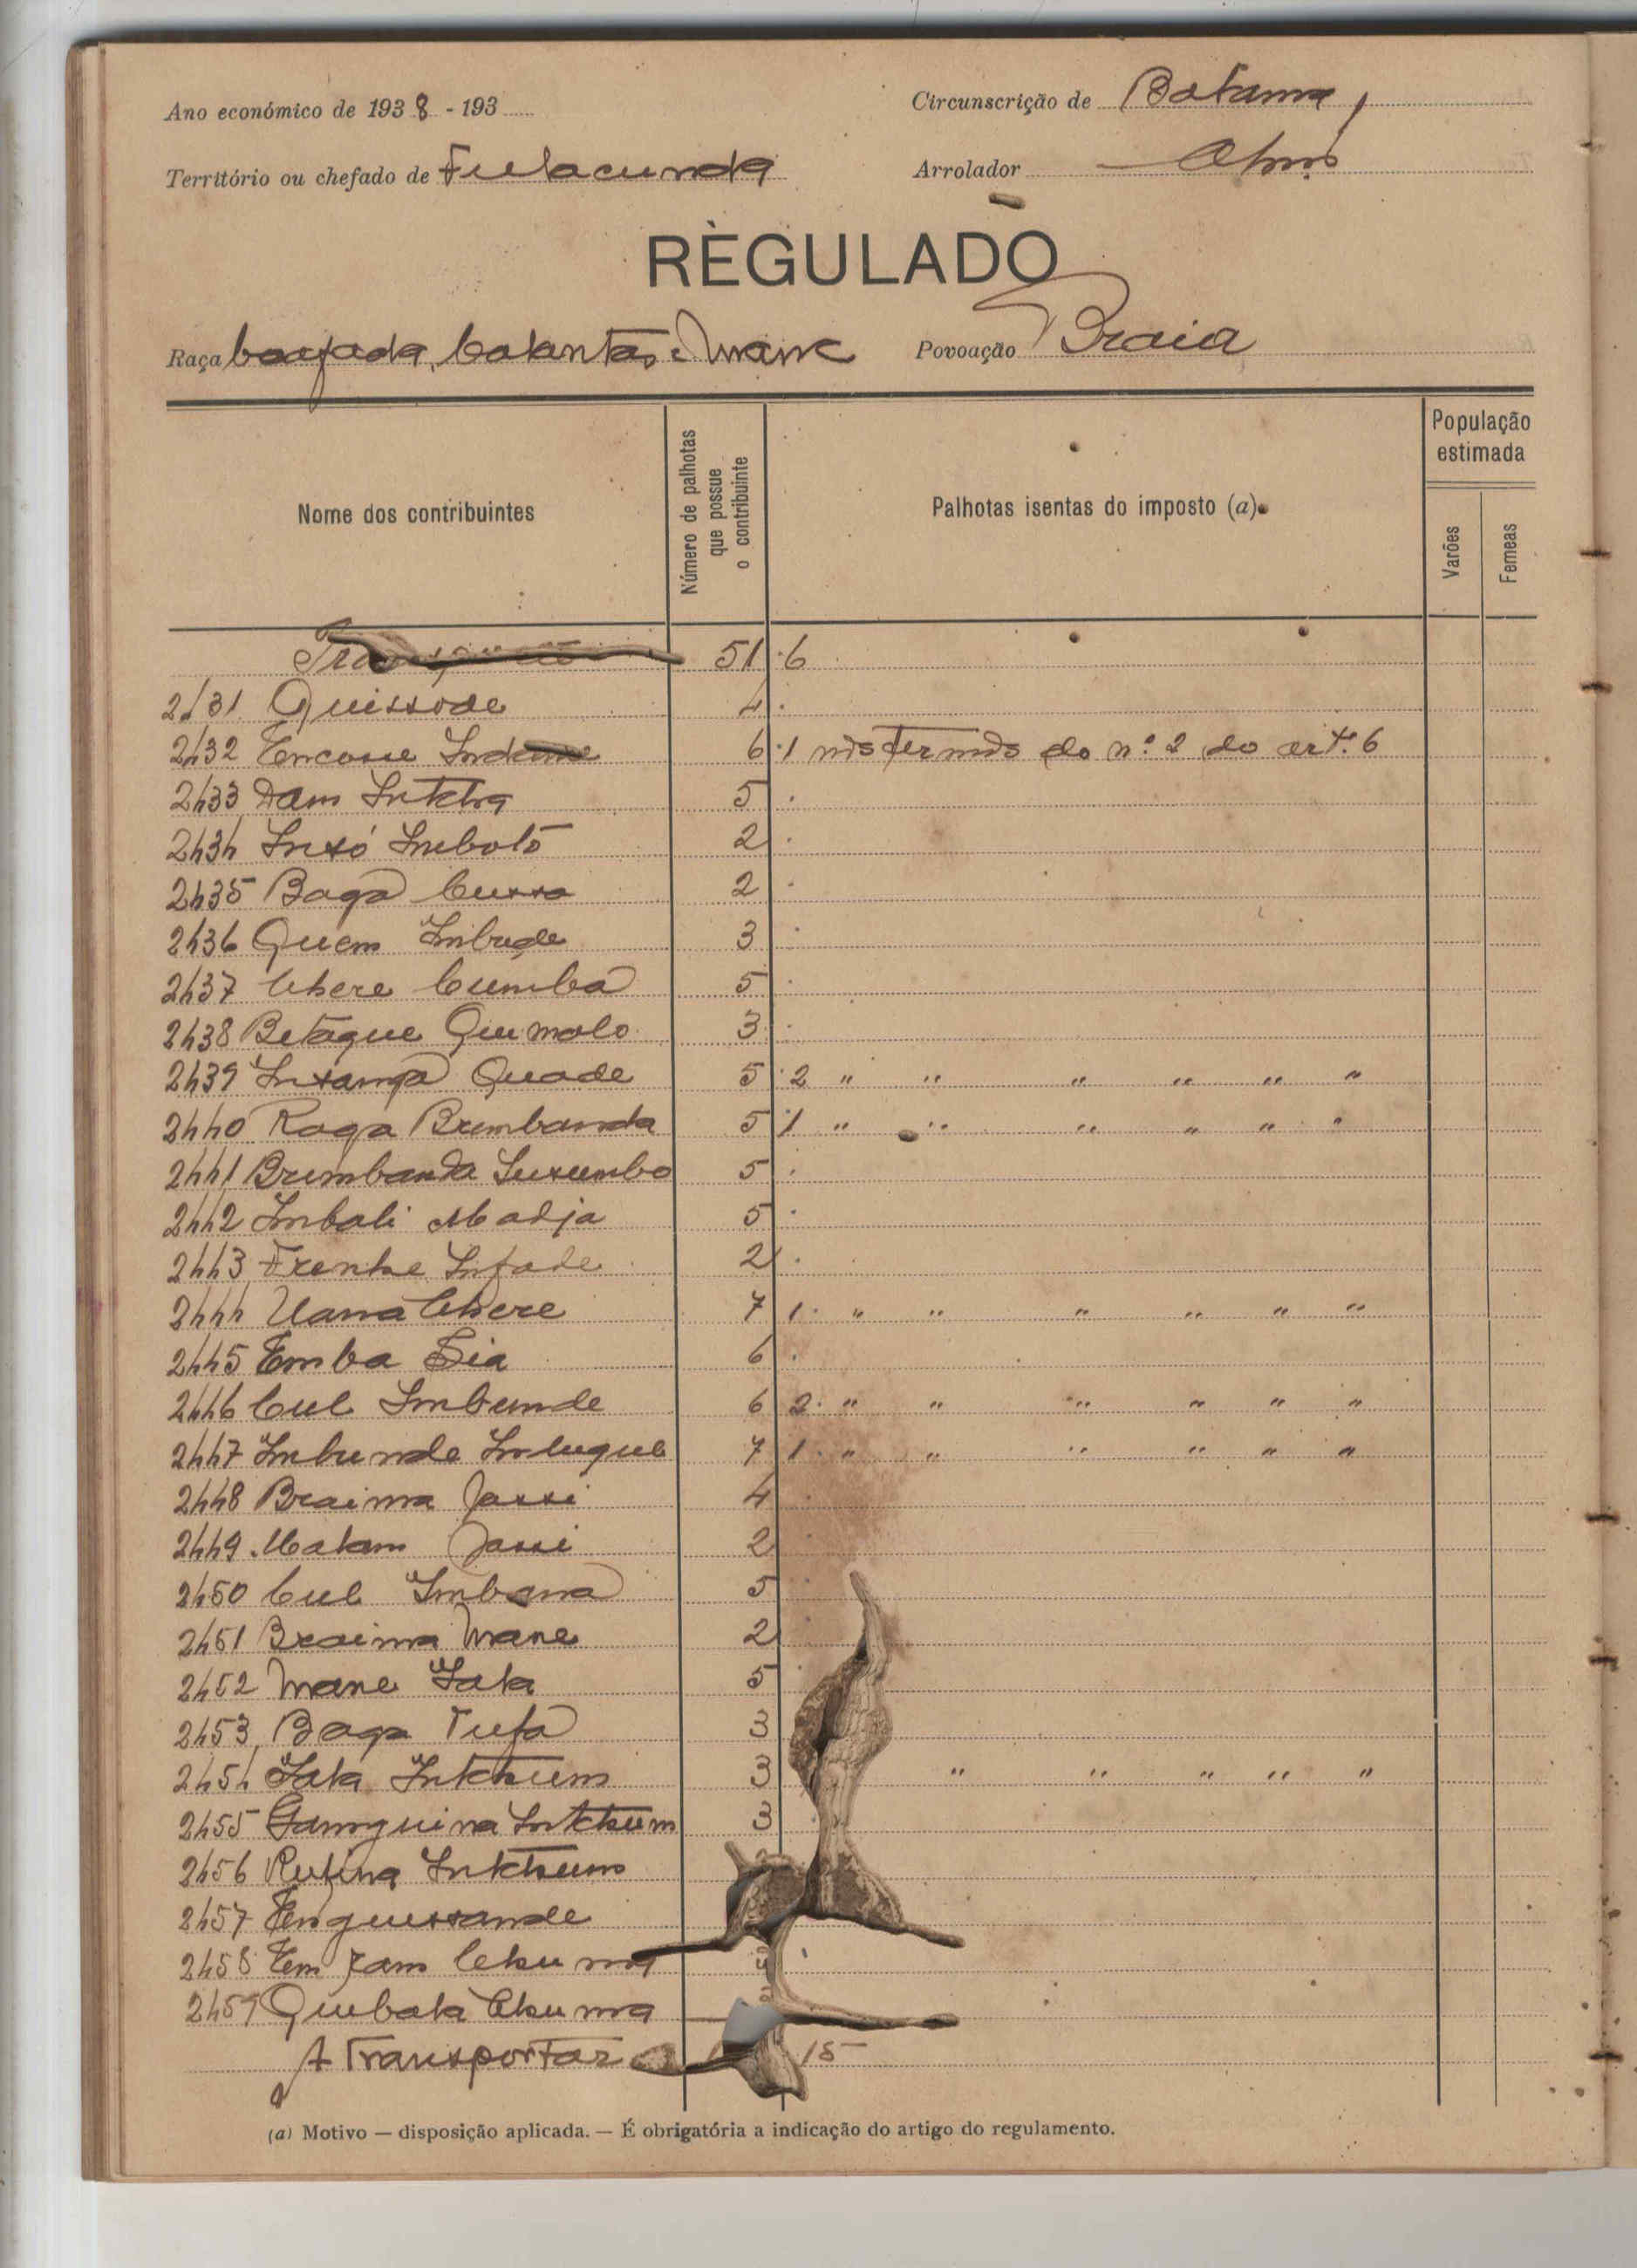 Ano económico de 1938 - 193
Circunscrição de Batama
Território ou chefado de Fulacunda
Arrolador
RÈGULADO
Raça Beafada, Balantas e Mane
Povoação Braia
Nome dos contribuintes
Número de palhotas que possue o contribuinte
Palhotas isentas do imposto (a)
População estimada
Varões
Femeas
51 6
2431 Quissode 4
2432 Encosse 6 1 nos termos do n.º 2 do art.º 6
2433 Dam 5
2434 Insó Imboló 2
2435 Bagã Cussa 2
2436 Quem Imbude 3
2437 Chere Cumbã 5
2438 Betaque Quimalo 3
2439 Insanga Quade 5 2 " " " " " "
2440 Raga Brumbanda 5 1 " " " " " "
2441 Brumbanda 5
2442 Imbali Madja 5
2443 Frenhe Infade 2
2444 Uana Chere 7 1 " " " " " "
2445 Emba Sia 6
2446 Cul Imbunde 6 2 " " " " " "
2447 Imbunde Imluque 7 1 " " " " " "
2448 Braima Jassi 4
2449 Malam Jassi 2
2450 Cul Imbana 5
2451 Braima Mane 2
2452 Mane Iala 5
2453 Baga Tufã 3
2454 Iala Intchum 3 " " " " "
2455 Ganguina Intchum 3
2456 Rutina Intchum
2457 Enguessande
2458 Em Fam Chuma
2459 Quibata Chuma
A Transportar 15
(a) Motivo — disposição aplicada. — É obrigatória a indicação do artigo do regulamento.